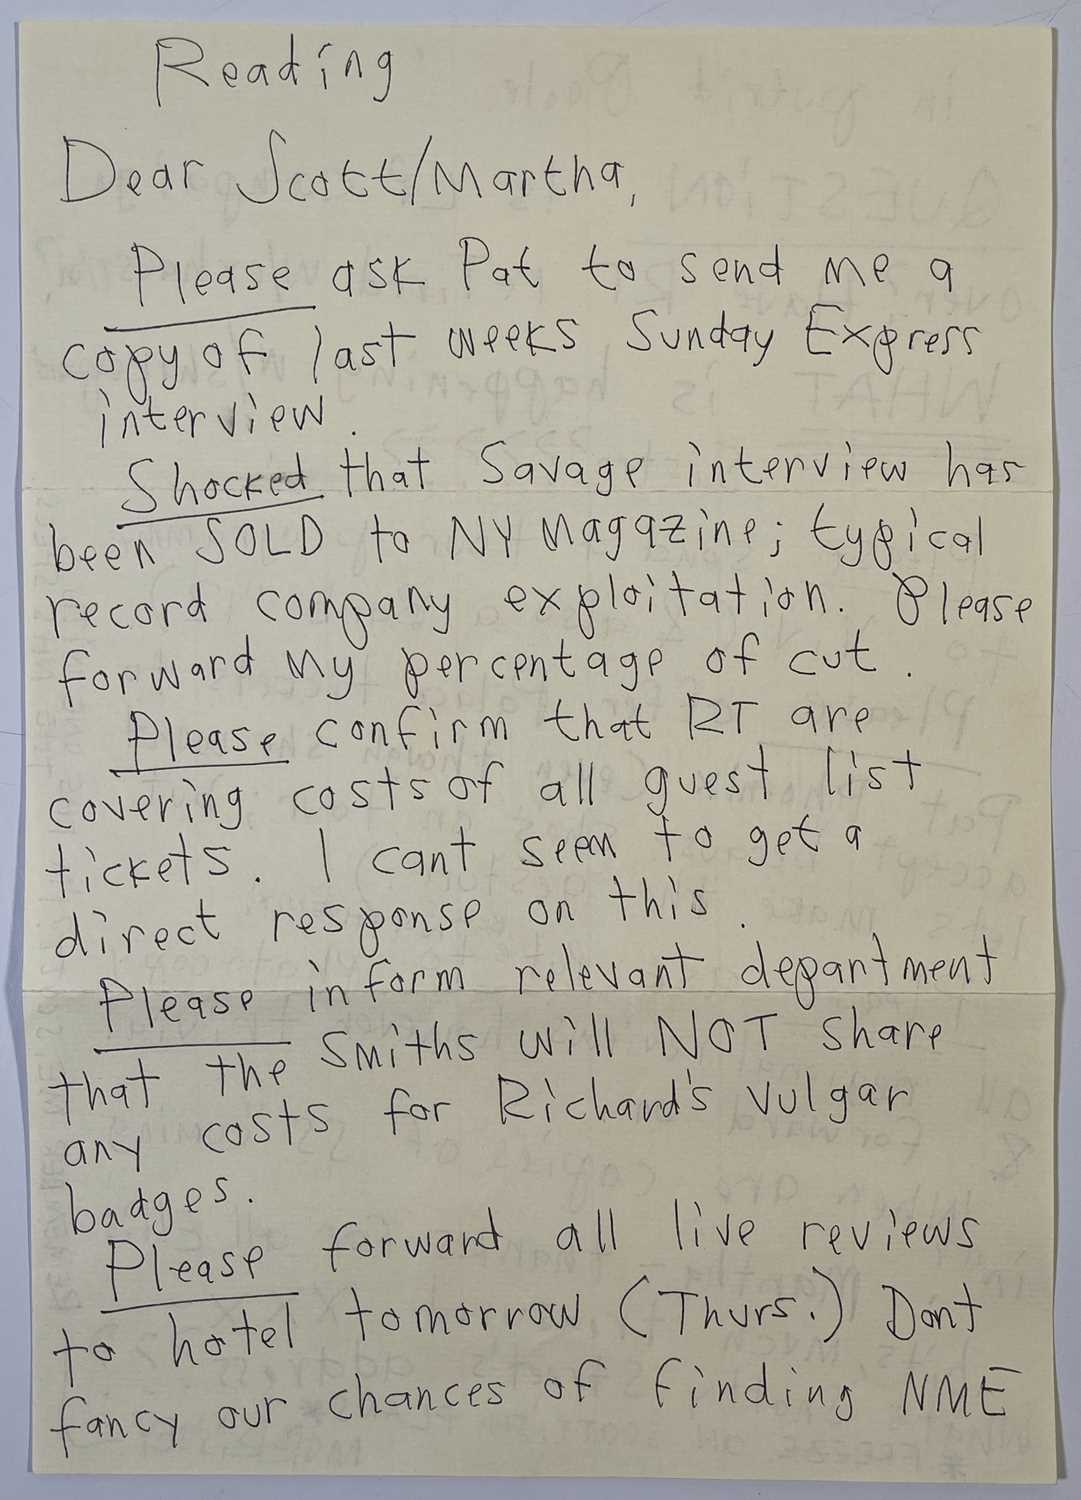 Reading
Dear Scott/Martha,
Please ask Pat to send me a
copy of last weeks Sunday Express
interview.
Shocked that Savage interview has
been SOLD to NY Magazine; typical
record company exploitation. Please
forward my percentage of cut.
Please confirm that RT are
covering costs of all guest list
tickets. I cant seem to get a
direct response on this.
Please inform relevant department
that the Smiths will NOT share
any costs for Richard's vulgar
badges.
Please forward all live reviews
to hotel tomorrow (Thurs.) Dont
fancy our chances of finding NME